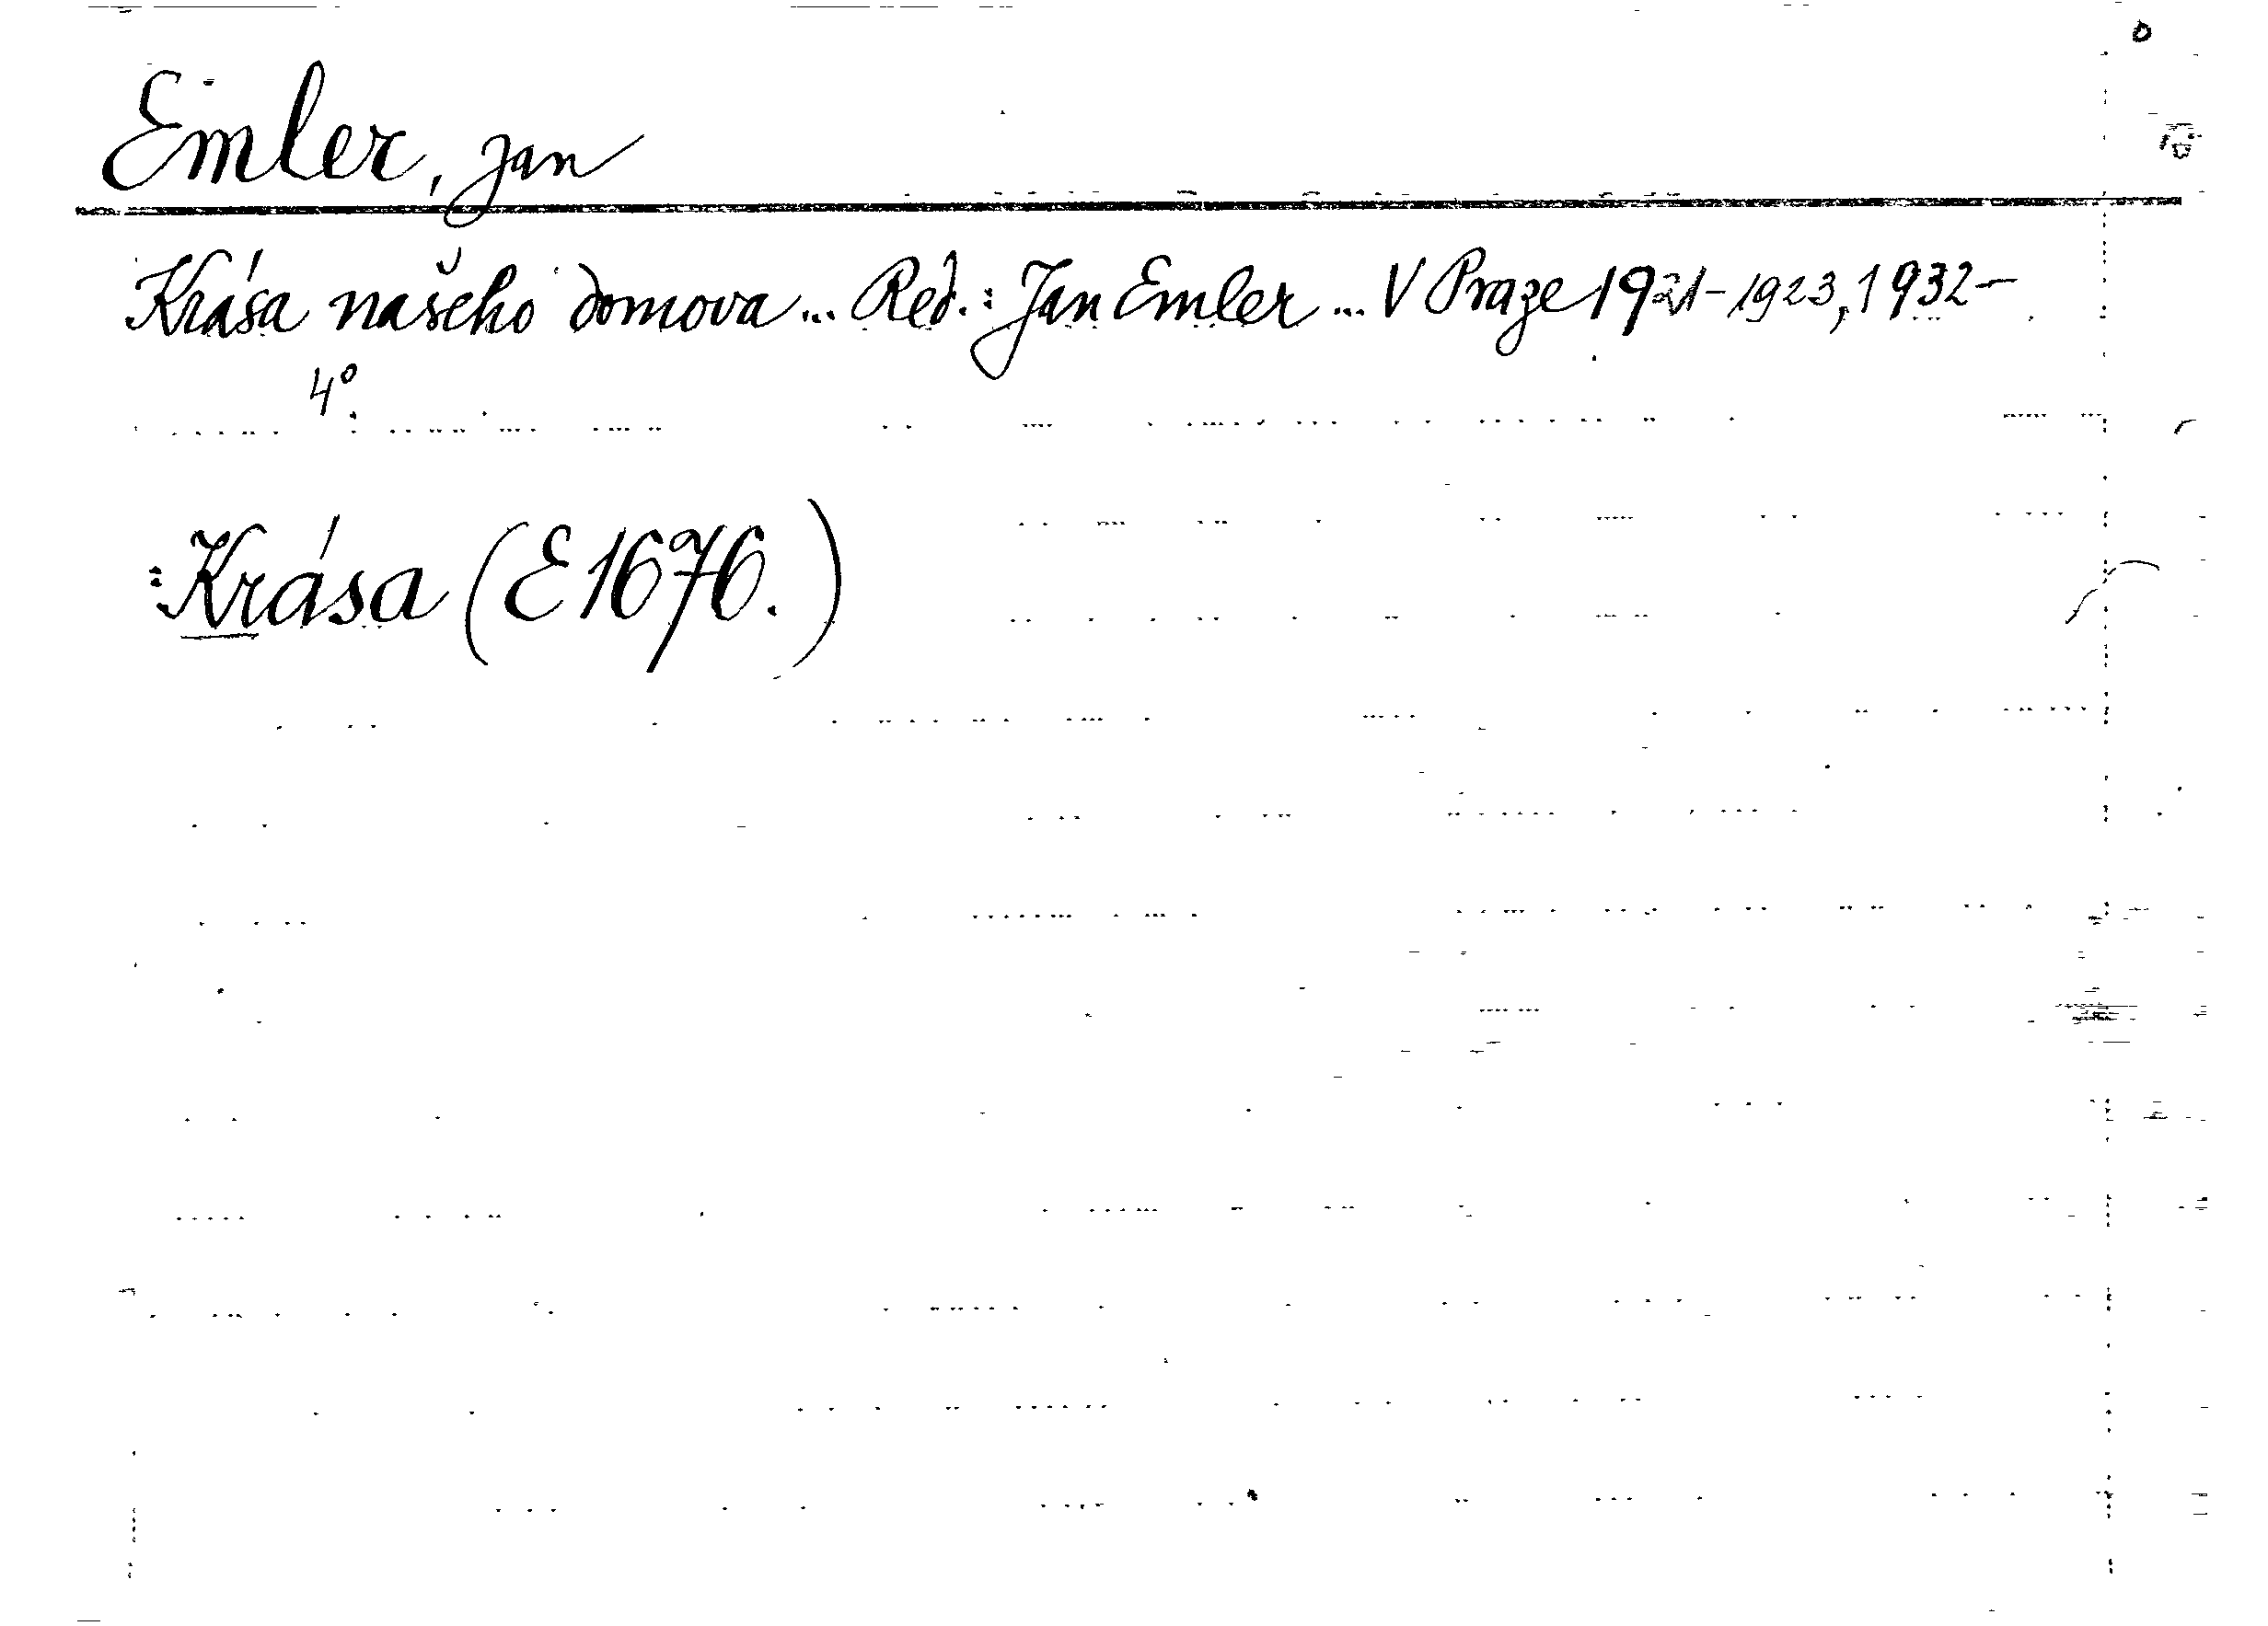 Emler, Jan
Krása našeho domova... Red.: Jan Emler... V Praze 1921-1923, 1932-
4°.
:Krása (E 1676.)